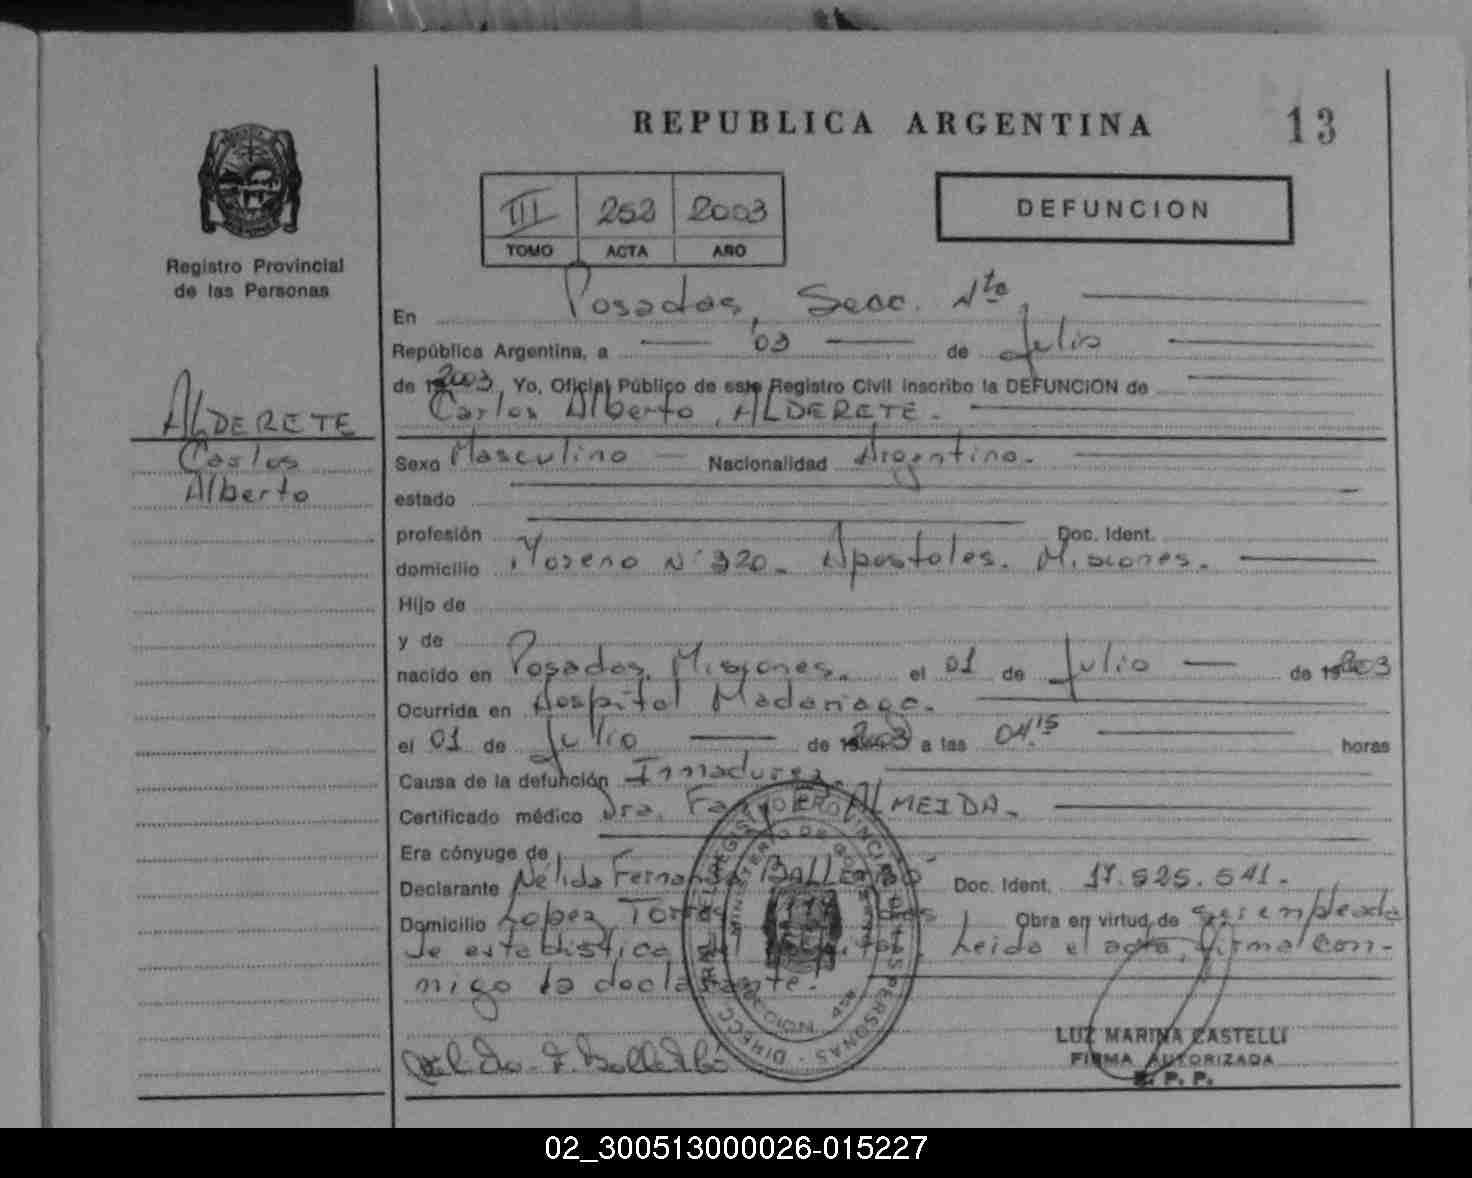 REPUBLICA ARGENTINA
13
III 252 2003
TOMO ACTA AÑO
DEFUNCION
Registro Provincial
de las Personas
ALDERETE
Carlos
Alberto
En Posadas, Secc. 4ta
República Argentina, a 03 de Julio
de 2003, Yo, Oficial Público de este Registro Civil inscribo la DEFUNCION de
Carlos Alberto, ALDERETE.
Sexo Masculino Nacionalidad Argentino.
estado
profesión Doc. Ident.
domicilio Moreno N° 320. Apostoles. Misiones.
Hijo de
y de
nacido en Posadas, Misiones. el 01 de Julio de 2003
Ocurrida en Hospital Madariaga.
el 01 de Julio de 2003 a las 04,15 horas
Causa de la defunción Inmadurez.
Certificado médico Dra. ALMEIDA.
Era cónyuge de
Declarante Nelida Fernanda Doc. Ident. 17.525.541.
Domicilio Lopez Torres Obra en virtud de ser empleada
de estadistica Leida el acta, firma con-
migo la declarante.
DIRECC. GRAL. DEL REGISTRO PROVINCIAL DE LAS PERSONAS
MINISTERIO DE GOBIERNO
SECCION 4ta
LUZ MARINA CASTELLI
FIRMA AUTORIZADA
R. P. P.
02_300513000026-015227